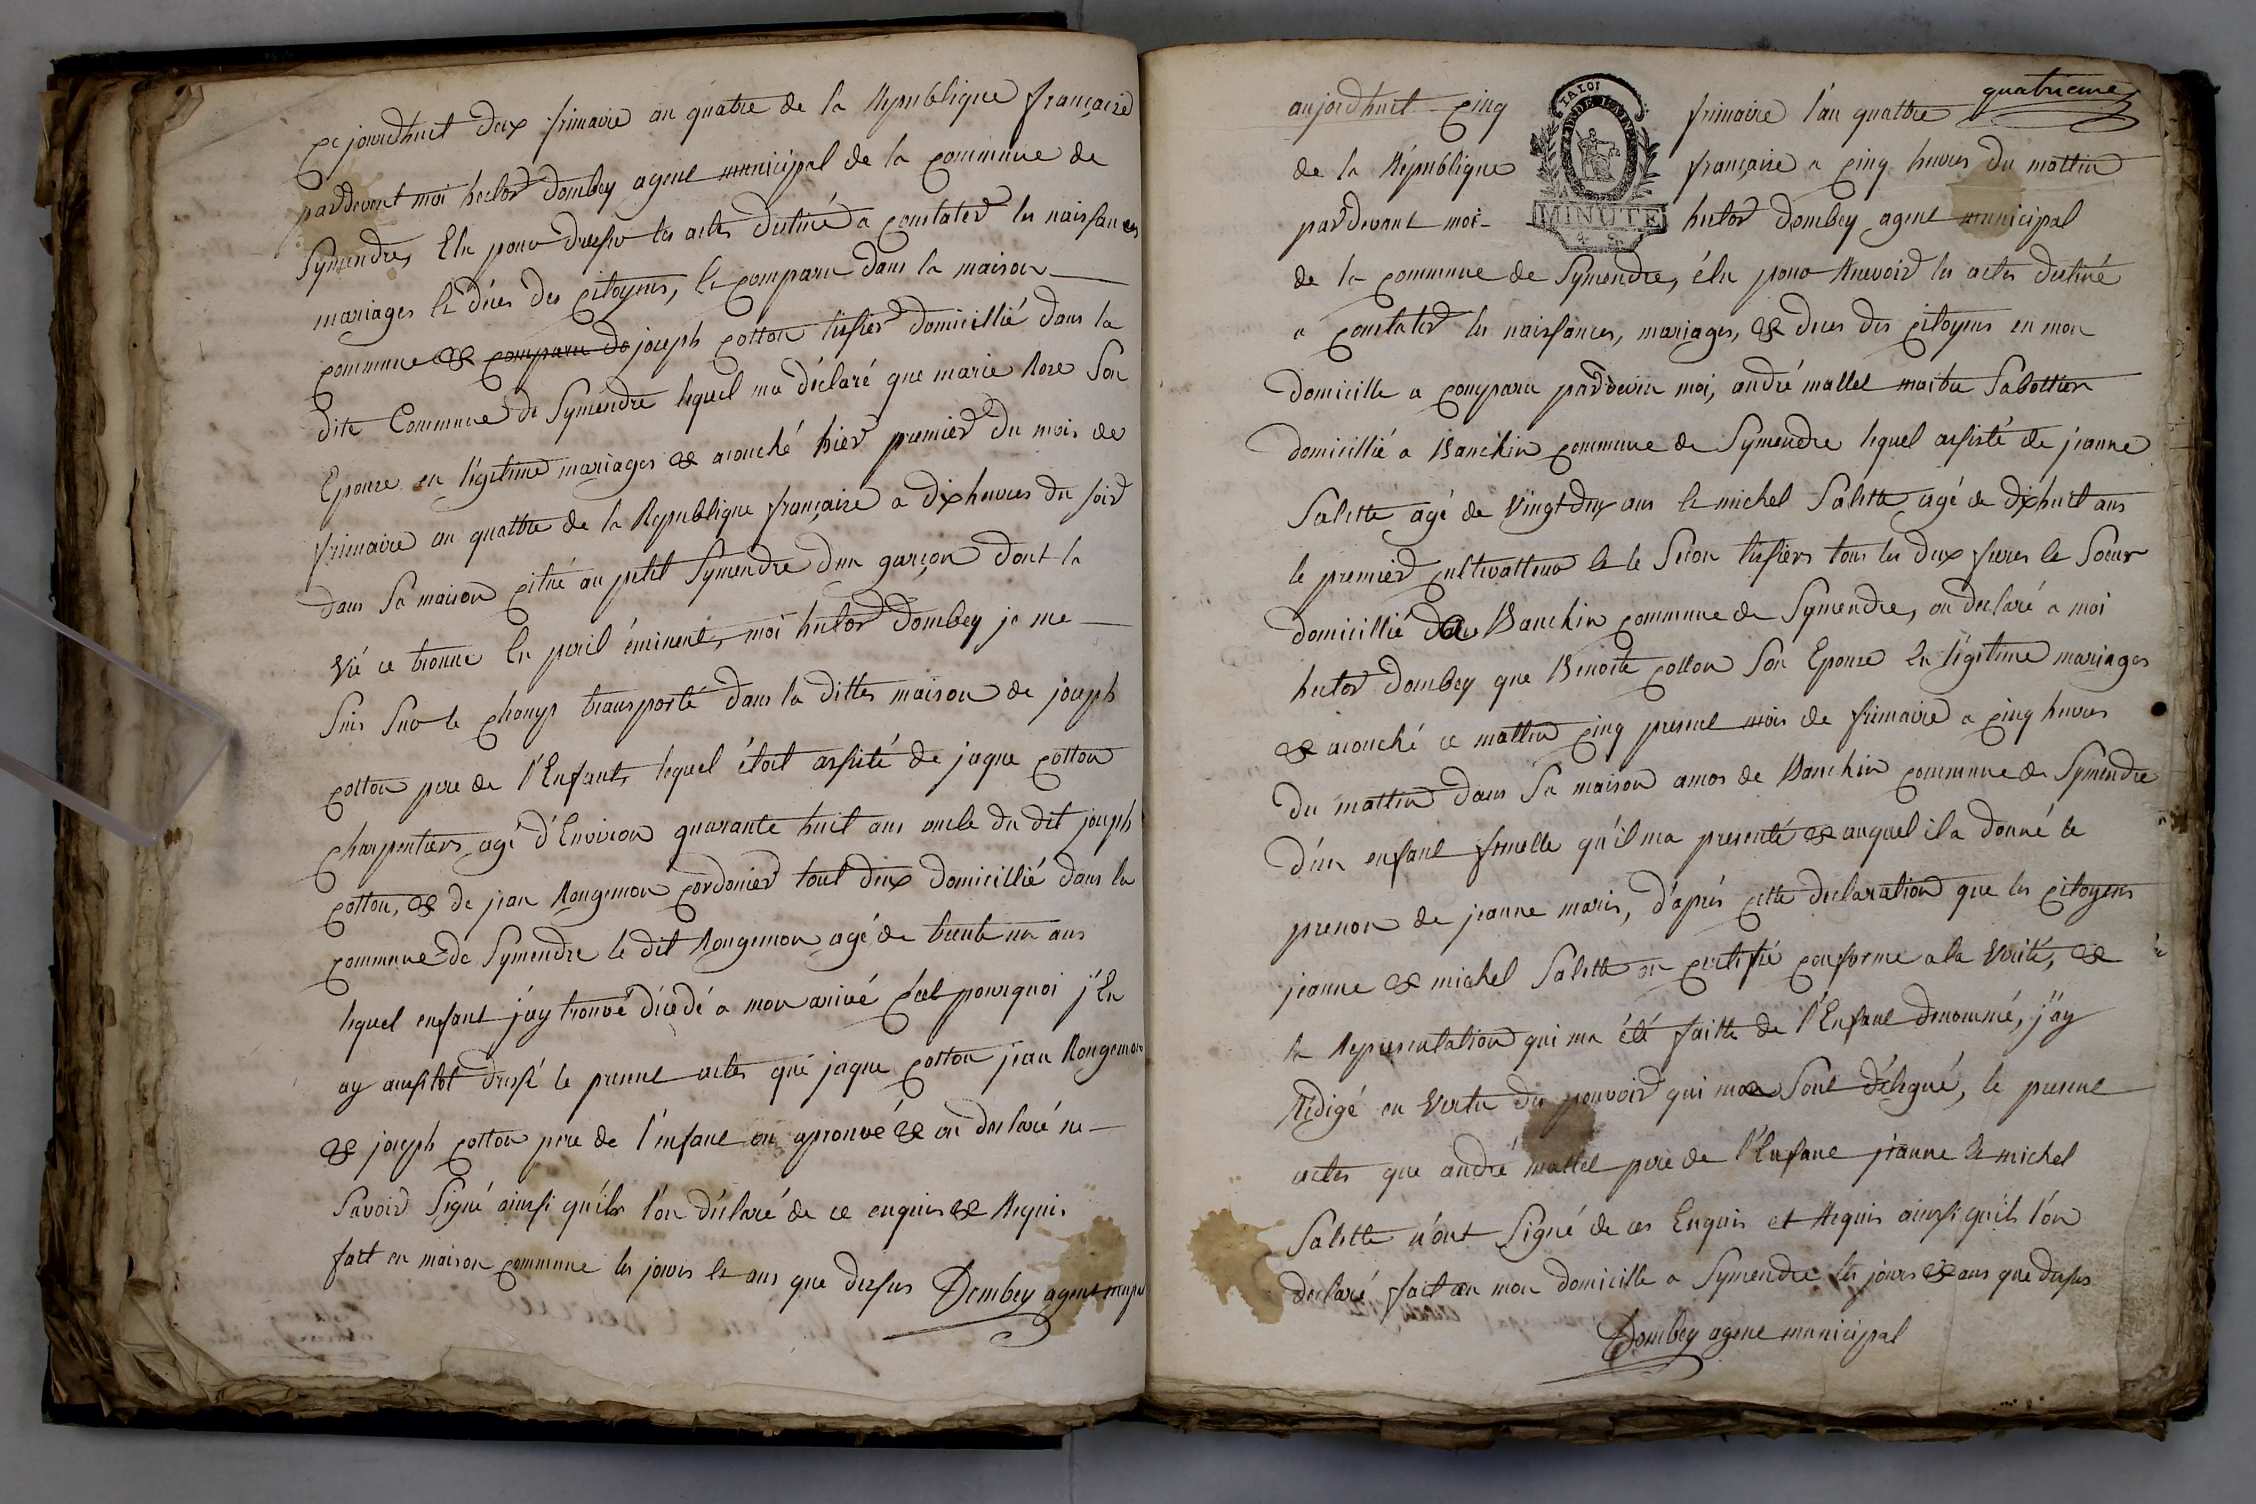 Ce jourdhuit deux frimaire an quatre de la Republique françaire
pardevent moi hector dombey agent municipal de la commune de
Symendre, Elu pour dresser les actes destiné a constater les naissances
mariages et déces des citoyens, et comparu dans la maison
commune & comparu da joseph cotton tissier domicillié dans la
dite Commune de Symendre lequel ma déclaré que marie Rose Son
Epouze en légitime mariages & acouché hier premier du mois de
frimaire an quattre de la Republique françaire a dix heures du soir
dans Sa maison citué au petit Symendre d'un garçon dont la
Vié ce trouve En peril éminent, moi hector dombey je me
Suis Sur le champ transporté dans la dittes maison de joseph
cotton pere de l'Enfant, lequel étoit assisté de jaque cotton
charpentiers agé d'Environ quarante huit ans oncle du dit joseph
cotton, & de jean Rougemon cordonier tout deux domicillié dans la
commune de Symendre le dit Rougemon agé de trente un ans
lequel enfant j'ay trouvé décedé a mon arivé c'est pourquoi j'En
ay aussitot dressé le presnt actes qué jaque cotton jean Rougemon
& joseph cotton pere de l'enfant on aprouvé & on declaré ne
Savoir Signé ainssi qu'ils l'on déclaré de ce enquis & Requis
fait en maison commune les jours et ans que dessus Dombey agent
quatrieme
aujordhuit cinq frimaire l'an quattre
LA LOI
de la République françaire a cinq heures du mattin
pardevant moi hector dombey agent municipal
MINUTE
de la commune de Symendre, élu pour Recevoir les actes destiné
a constater les naissances, mariages, & deces des citoyens en mon
domicille a comparu pardevin moi, andré mallet maitre Sabottier
domicillié a Banchin commune de Symendre lequel assisté de jeanne
Salette agé de Vingt deux ans et michel Salette agé de dixhuit ans
le premier cultivatteur et le Secon tissiers tous les deux freres et Soeur
domicillié de Banchin commune de Symendre, on declaré a moi
hector dombey que Benoite cotton Son Epouze En légitime mariages
& acouché ce mattin cinq presnt mois de frimaire a cinq heures
du mattin dans Sa maison amos de Banchin commune de Symendre
d'un enfant femelle qu'il ma presenté & auquel il a donné le
prenon de jeanne maris, d'aprés cette declaration que les citoyens
jeanne & michel Salette on certifié conforme a la Verité, &
la Representation qui ma été faitte de l'Enfant denommé, j'ay
Rédigé en Vertu des pouvoir qui me Sont délegué, le presnt
actes que andré mallet pere de l'Enfant jeanne et michel
Salette n'ont Signé de ces Enquis et Requis ainssi qu'ils l'on
declaré fait an mon domicille a Symendre les jours & ans que dessus
Dombey agent municipal